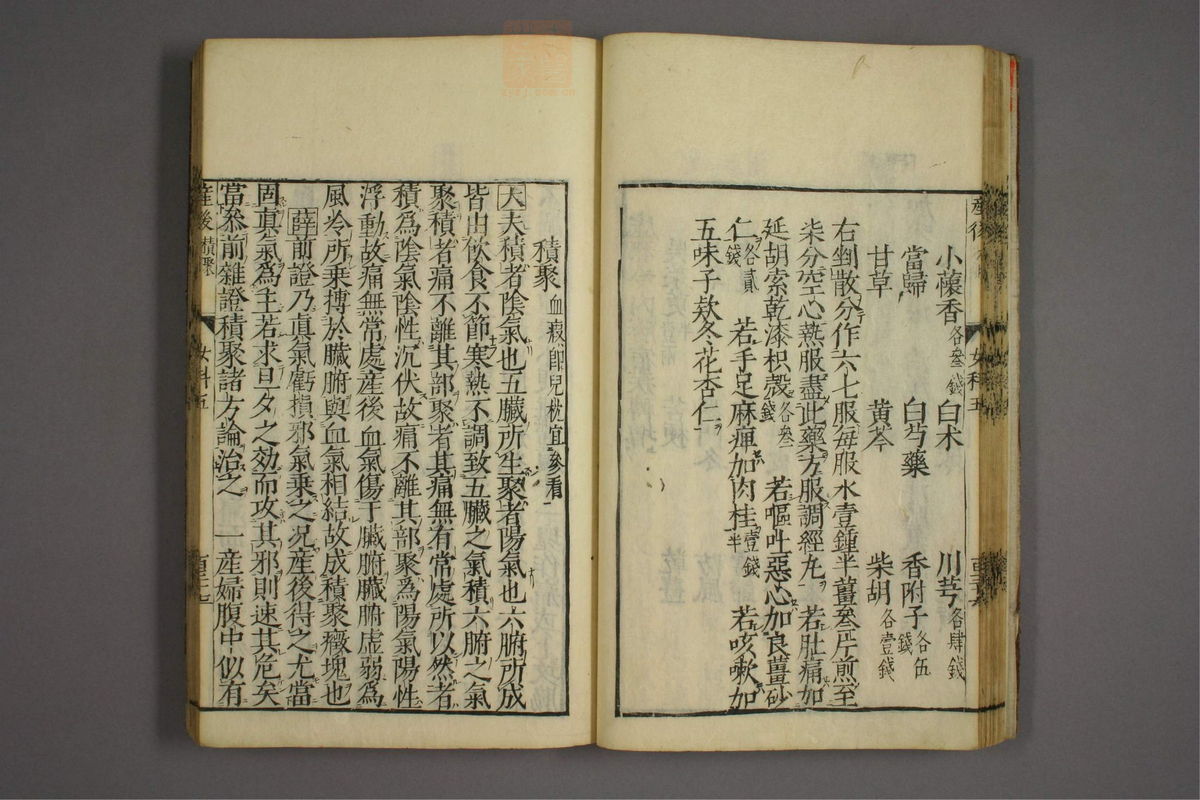 小懷香各叁錢 白朮 川芎各肆錢
當歸 白芍藥 香附子各伍錢
甘草 黃芩 柴胡各壹錢
右剉散分作六七服每服水壹鍾半薑叁片煎至
柒分空心熱服盡此藥方服調經丸 若肚痛加
延胡索乾漆枳殼各叁錢 若嘔吐惡心加良薑砂
仁各貳錢 若手足麻痺加肉桂壹錢半 若咳嗽加
五味子欵冬花杏仁
積聚血瘕卽兒枕宜參看
大夫積者陰氣也五臟所生聚者陽氣也六腑所成
皆由飲食不節寒熱不調致五臟之氣積六腑之氣
聚積者痛不離其部聚者其痛無有常處所以然者
積為陰氣陰性沉伏故痛不離其部聚為陽氣陽性
浮動故痛無常處產後血氣傷于臟腑臟腑虛弱為
風冷所乘搏於臟腑與血氣相結故成積聚癥塊也
薛前證乃眞氣虧損邪氣乘之况產後得之尤當
固眞氣為主若求旦夕之効而攻其邪則速其危矣
當叅前雜證積聚諸方論治之 一產婦腹中似有
產後 積聚 女科五
女科五